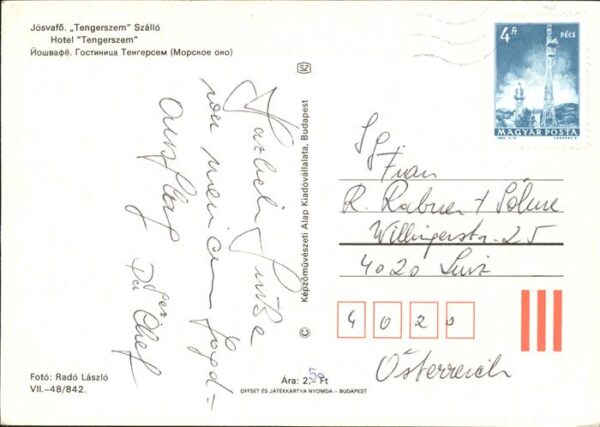 Jósvafő. „Tengerszem” Szálló
Hotel "Tengerszem"
Йошвафё. Гостиница Тенгерсем (Морское око)
4 Ft
PÉCS
MAGYAR POSTA
SZ
© Képzőművészeti Alap Kiadóvállalata, Budapest
Herzliche Grüße
von meinem Jagd=
ausflug
Der Chef
Sg
R. Rabner + Söhne
Willingerstr. 25
4020 Linz
4 0 2 0
Österreich
Fotó: Radó László
VII.-48/842.
Ára: 2,50 Ft
OFFSET ÉS JÁTÉKKÁRTYA NYOMDA - BUDAPEST